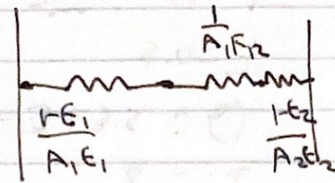 1/(A₁F₁₂)
(1-ϵ₁)/(A₁ϵ₁) (1-ϵ₂)/(A₂ϵ₂)